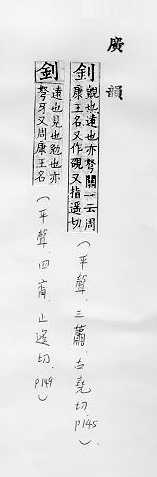 廣韻
釗 覿也遠也亦弩關一云周
康王名又作䚯又指遥切
(平聲、三蕭、古堯切. P145)
釗 遠也見也勉也亦
弩牙又周康王名
(平聲、四宵、止遙切. P149)